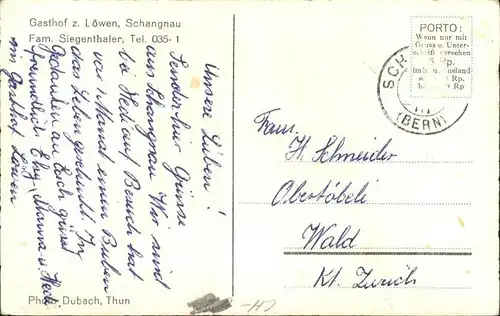 Gasthof z. Löwen, Schangnau
Fam. Siegenthaler, Tel. 035-1
Unsere Lieben!
Senden Eur Grüsse
aus Schangnau. Wir sind
bei Hedi auf Besuch hat
vor 1 Monat einen Buben
das Leben geschenkt. In
Gedanken an Euch grüsst
freundlich Eur Mamma u. Hedi
im Gasthof Löwen
Photo Dubach, Thun
PORTO:
Wenn nur mit
Gruss u. Unter-
schrift versehen
5 Rp.
im In- u. Ausland
Rp.
Rp
SCH
III
(BERN)
Fam.
H. Schneider
Obertöbeli
Wald
Kt. Zürich
CH-